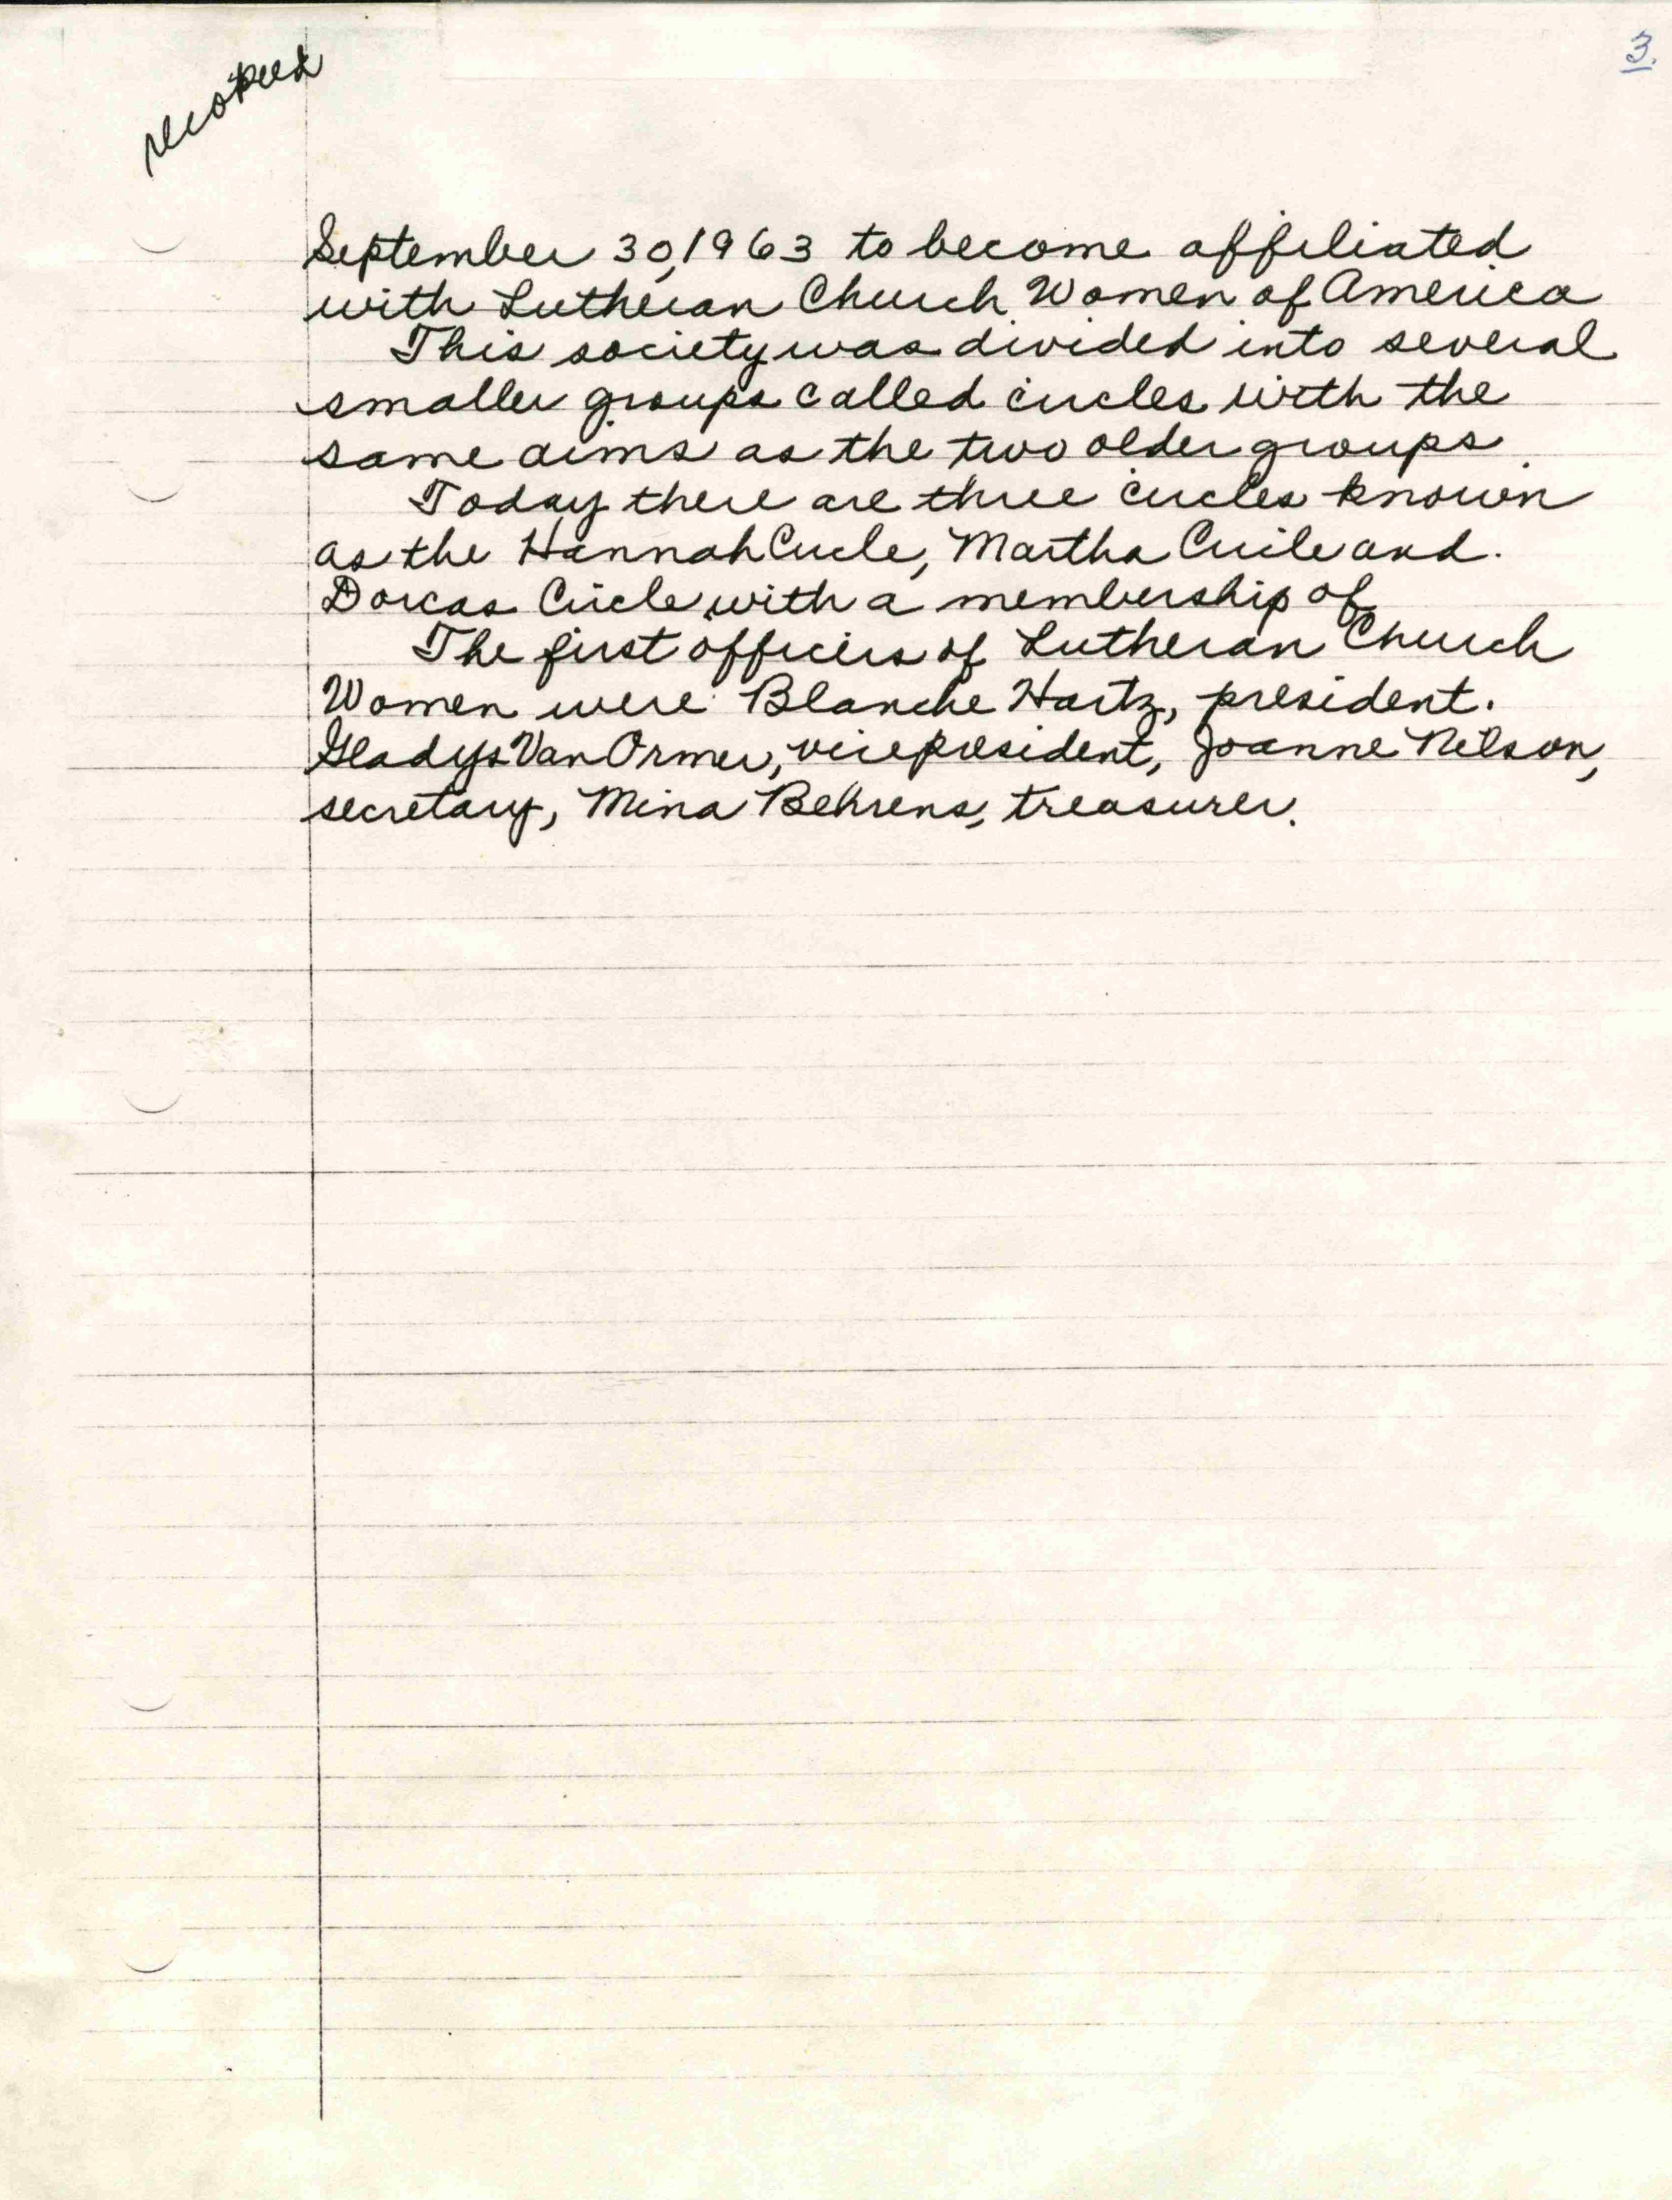 recopied
3.
September 30, 1963 to become affiliated
with Lutheran Church Women of America
This society was divided into several
smaller groups called circles with the
same aims as the two older groups.
Today there are three circles known
as the Hannah Circle, Martha Circle and.
Dorcas Circle with a membership of
The first officers of Lutheran Church
Women were Blanche Hartz, president.
Gladys Van Ormer, vice president, Joanne Nelson,
secretary, Mina Behrens, treasurer.